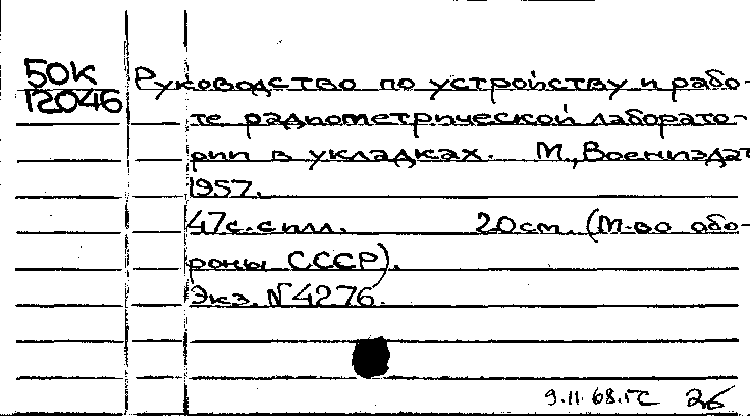 50К
12046
Руководство по устройству и рабо-
те радиометрической лаборато-
рии в укладках. М., Воениздат
1957.
47с. с илл. 20см. (М-во обо-
роны СССР).
Экз. N 4276.
9.11.68.